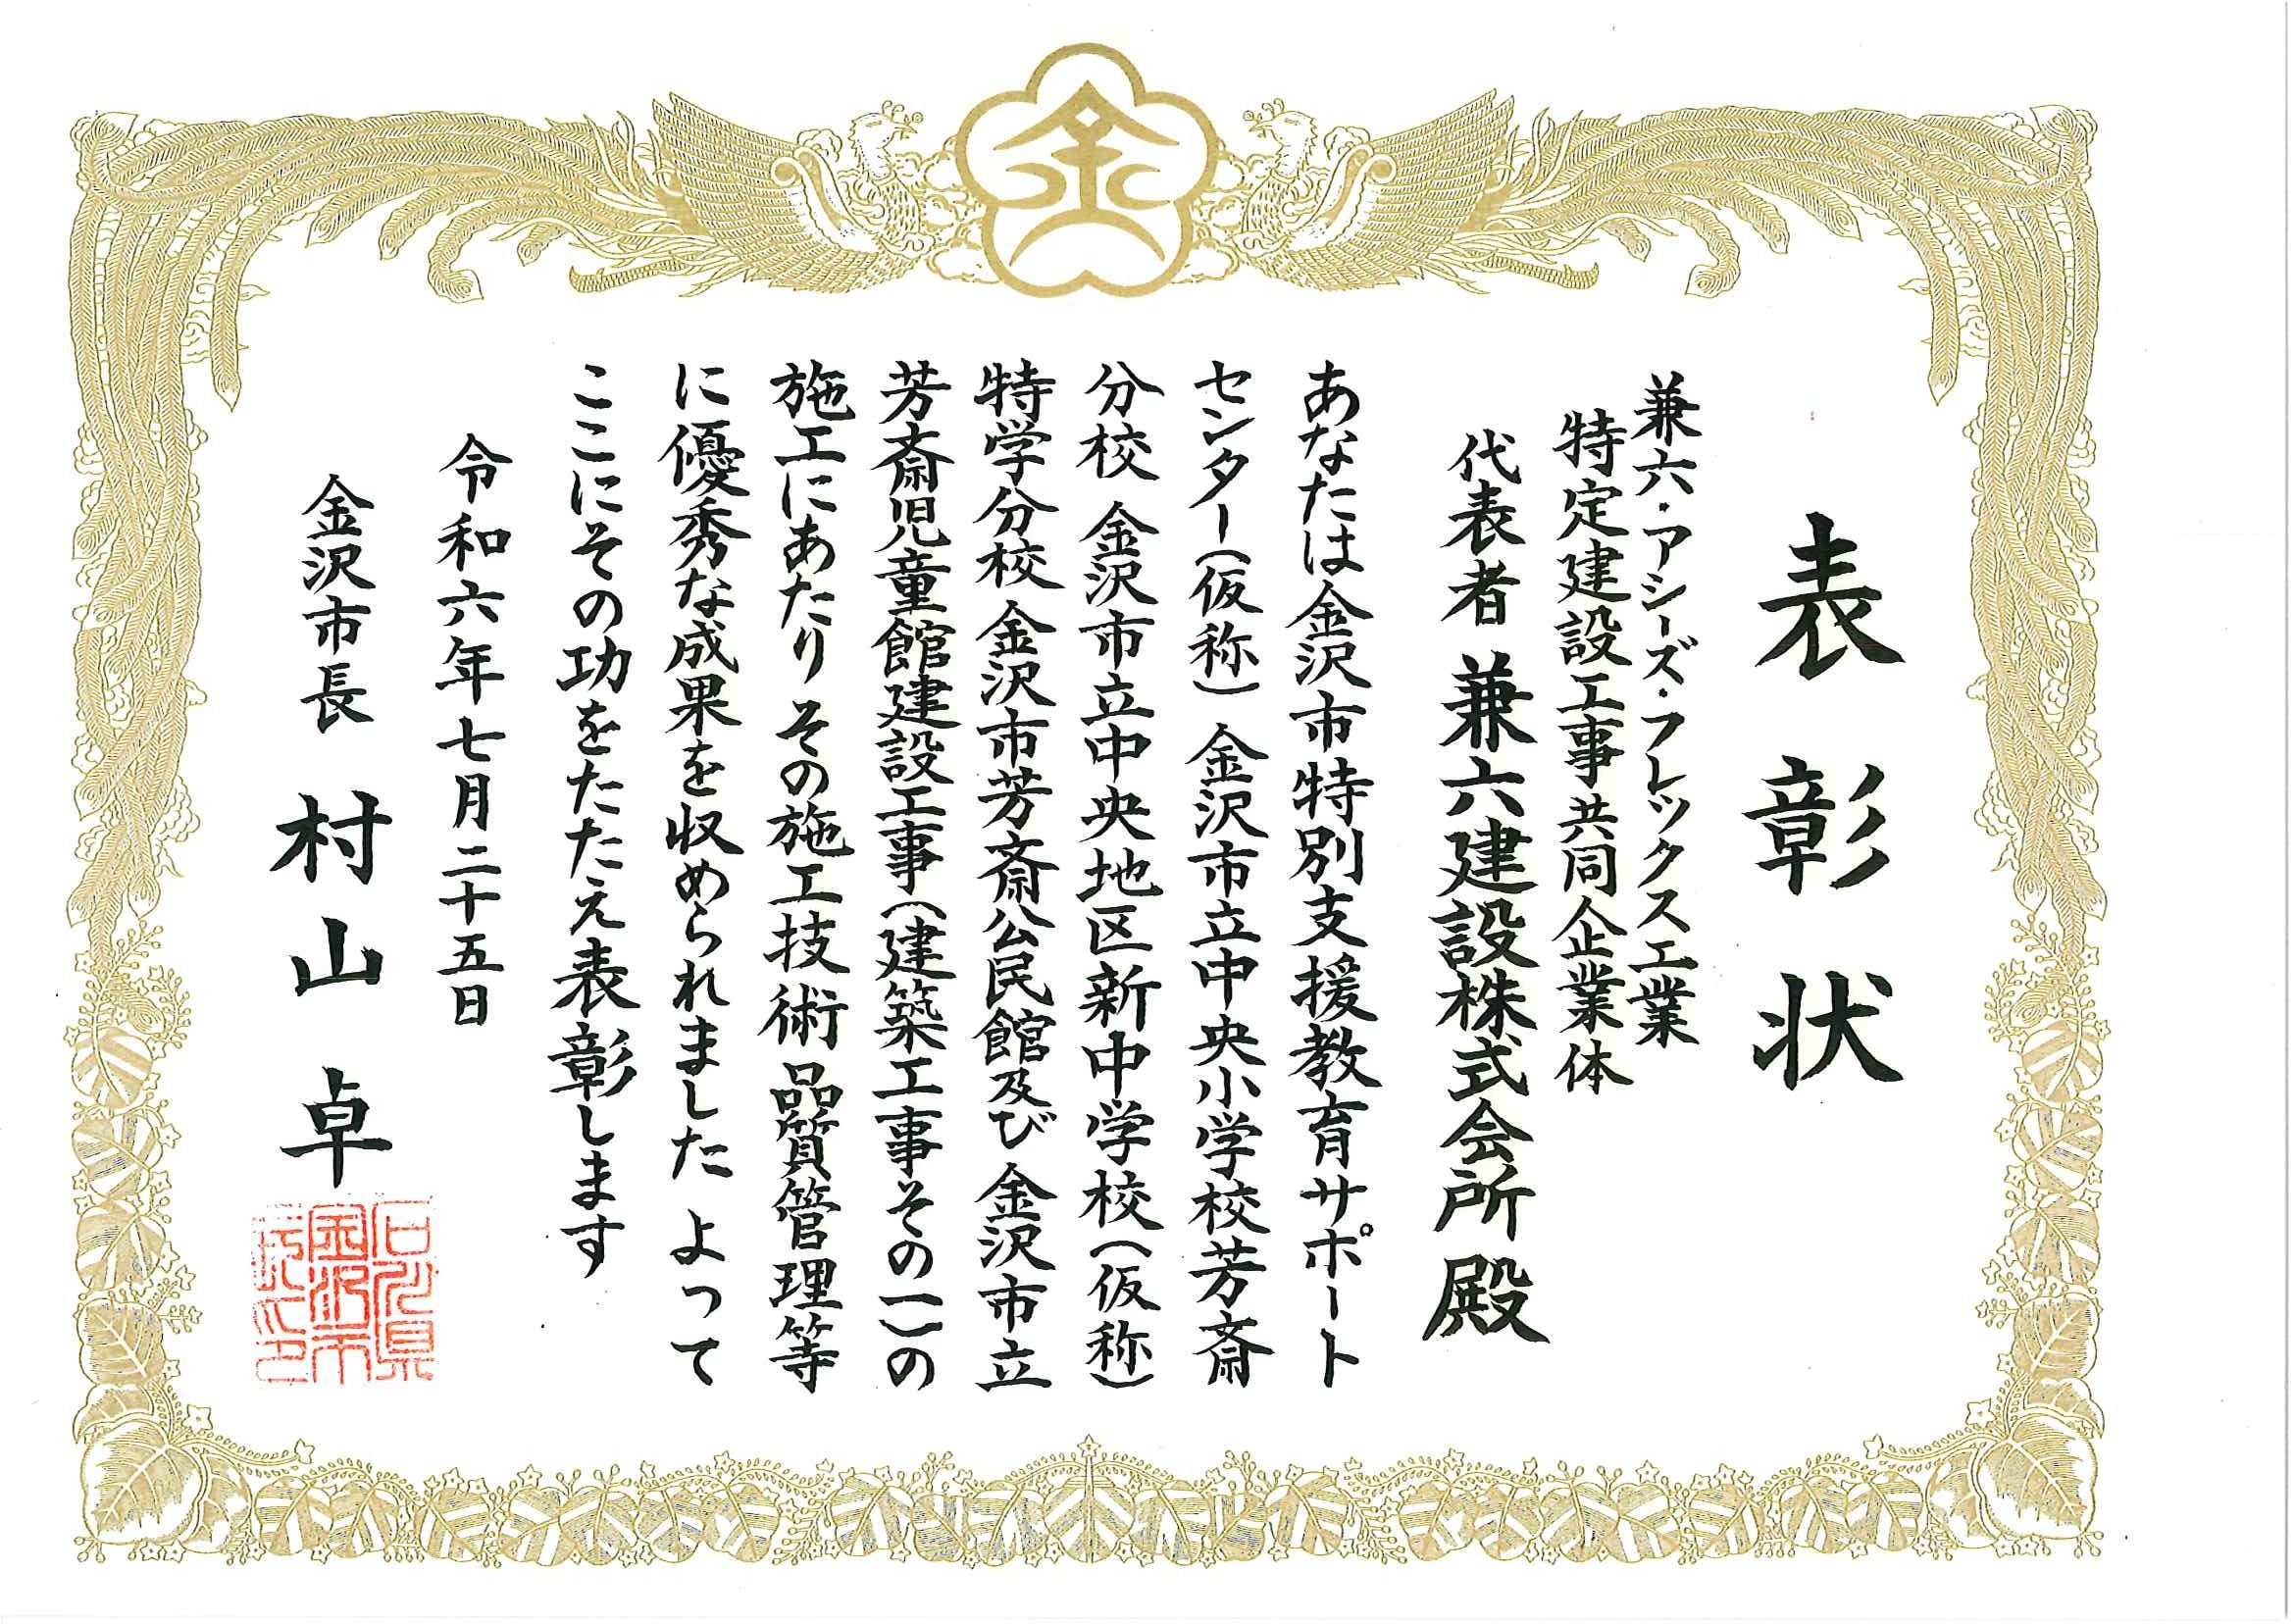 金
表彰状
兼六・アシーズ・フレックス工業
特定建設工事共同企業体
代表者 兼六建設株式会所殿
あなたは金沢市特別支援教育サポート
センター(仮称) 金沢市立中央小学校芳斎
分校 金沢市立中央地区新中学校(仮称)
特学分校 金沢市芳斎公民館及び 金沢市立
芳斎児童館建設工事(建築工事その一)の
施工にあたり その施工技術 品質管理等
に優秀な成果を収められました よって
ここにその功をたたえ表彰します
令和六年七月二十五日
金沢市長 村山卓